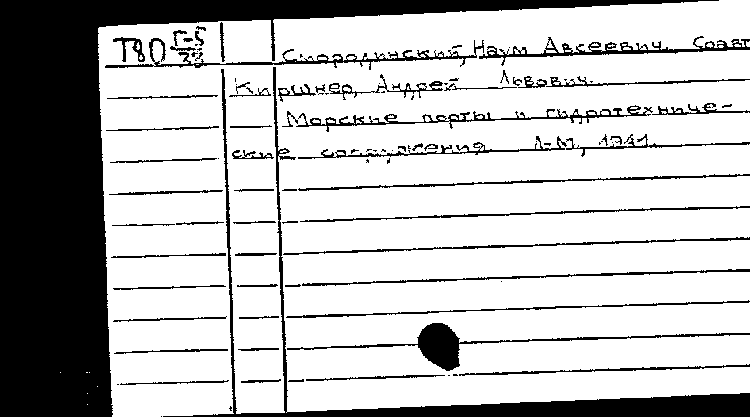 Т80 Г-5/33 Смородинский, Наум Авсеевич. Соавт
Киршнер, Андрей Львович.
Морские порты и гидротехниче-
ские сооружения. Л-М, 1941.